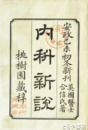 安政己未初冬新刊
英國醫士
合信氏著
内科新說
桃樹園藏梓